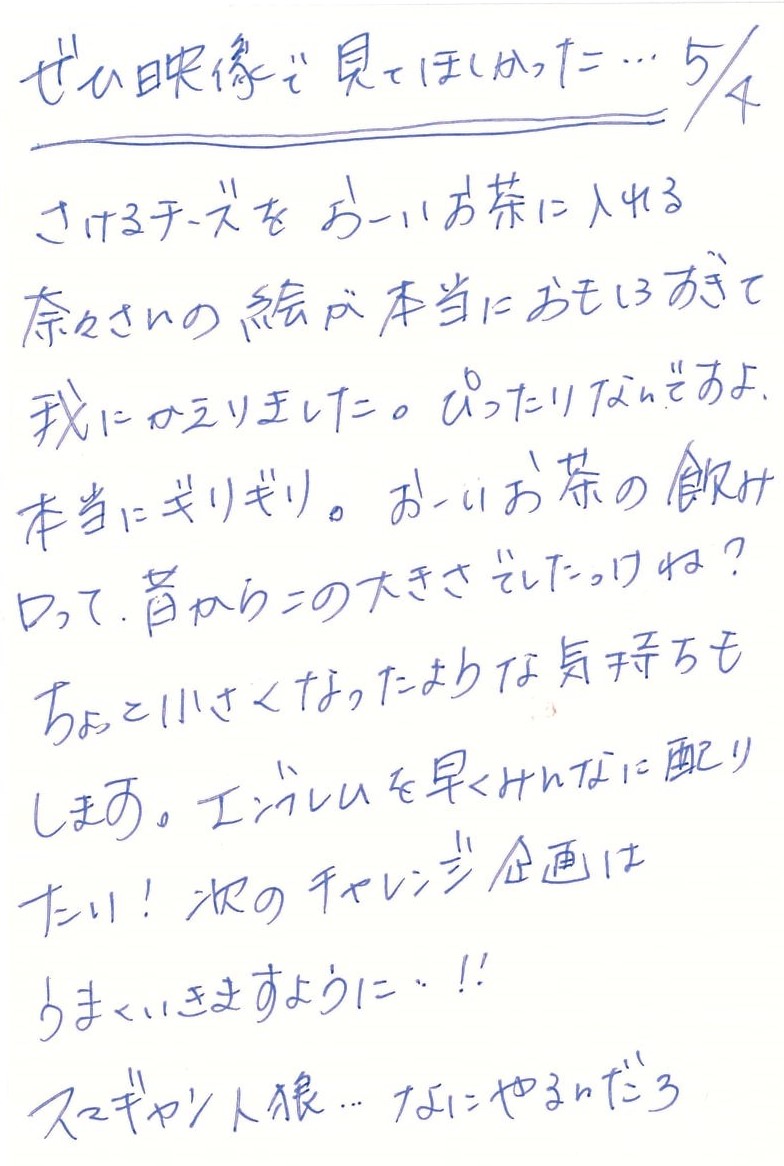 ぜひ映像で見てほしかった… 5/4
さけるチーズをおーいお茶に入れる
奈々さんの絵が本当におもしろすぎて
我にかえりました。ぴったりなんですよ、
本当にギリギリ。おーいお茶の飲み
口って、昔からこの大きさでしたっけね?
ちょっと小さくなったような気持ちも
します。エンブレムを早くみんなに配り
たい!次のチャレンジ企画は
うまくいきますように‥!!
スマギャン人狼…なにやるんだろ